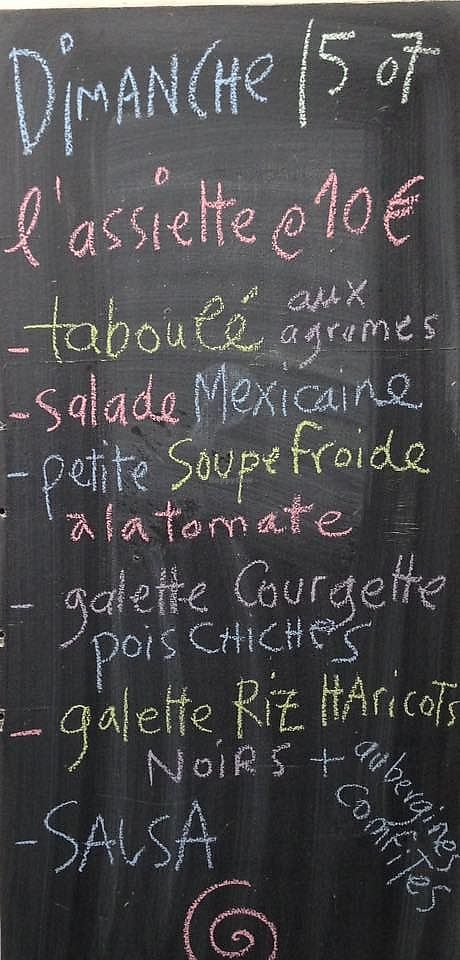 DIMANCHE 15 07
l'assiette @ 10€
- taboulé aux
agrumes
- salade Mexicaine
- petite soupe froide
a la tomate
- galette Courgette
pois CHICHES
- galette RIZ HARICOTS
NOIRS + aubergines
CONFITES
- SALSA